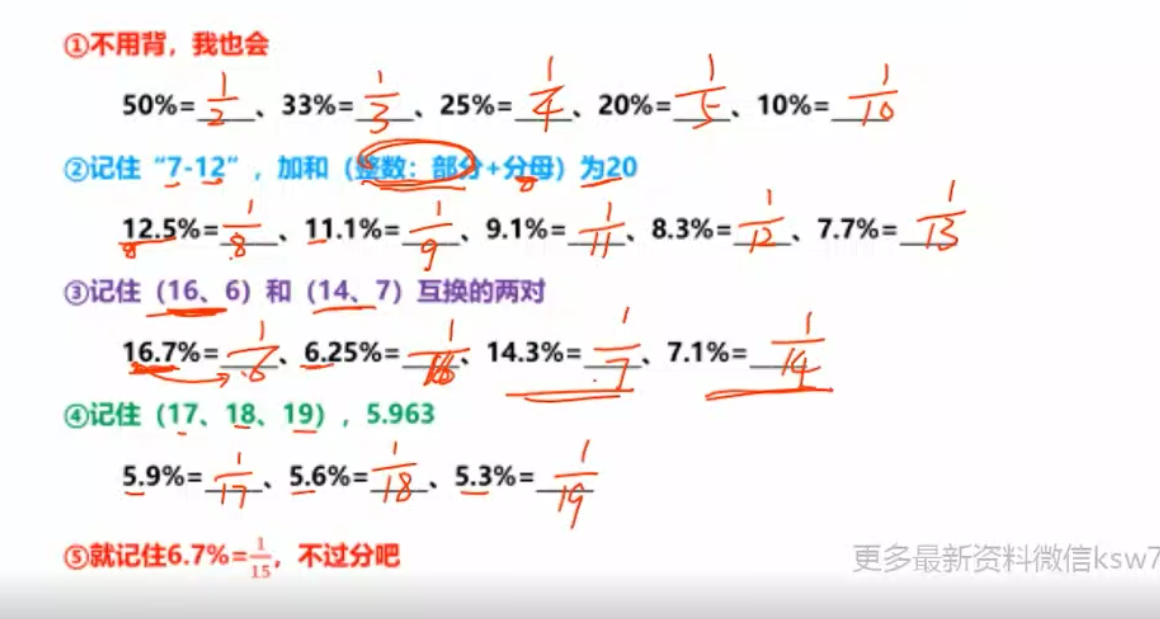 ①不用背，我也会
50%=1/2、33%=1/3、25%=1/4、20%=1/5、10%=1/10
②记住“7-12”，加和（整数：部分+分母）为20
12.5%=1/8、11.1%=1/9、9.1%=1/11、8.3%=1/12、7.7%=1/13
8 8
③记住（16、6）和（14、7）互换的两对
16.7%=1/6、6.25%=1/16、14.3%=1/7、7.1%=1/14
④记住（17、18、19），5.963
5.9%=1/17、5.6%=1/18、5.3%=1/19
⑤就记住6.7%=1/15，不过分吧
更多最新资料微信ksw7